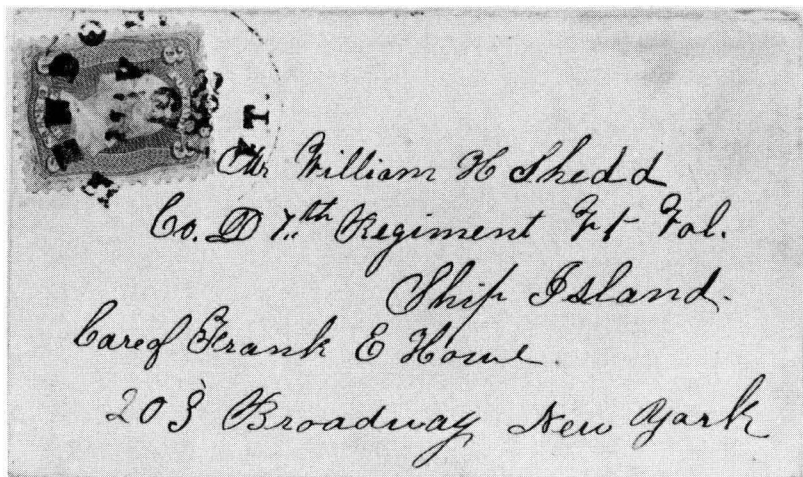 Mr William H Shedd
Co. D 7.th Regiment Vt Vol.
Ship Island.
Care of Frank E Howe.
203 Broadway New York